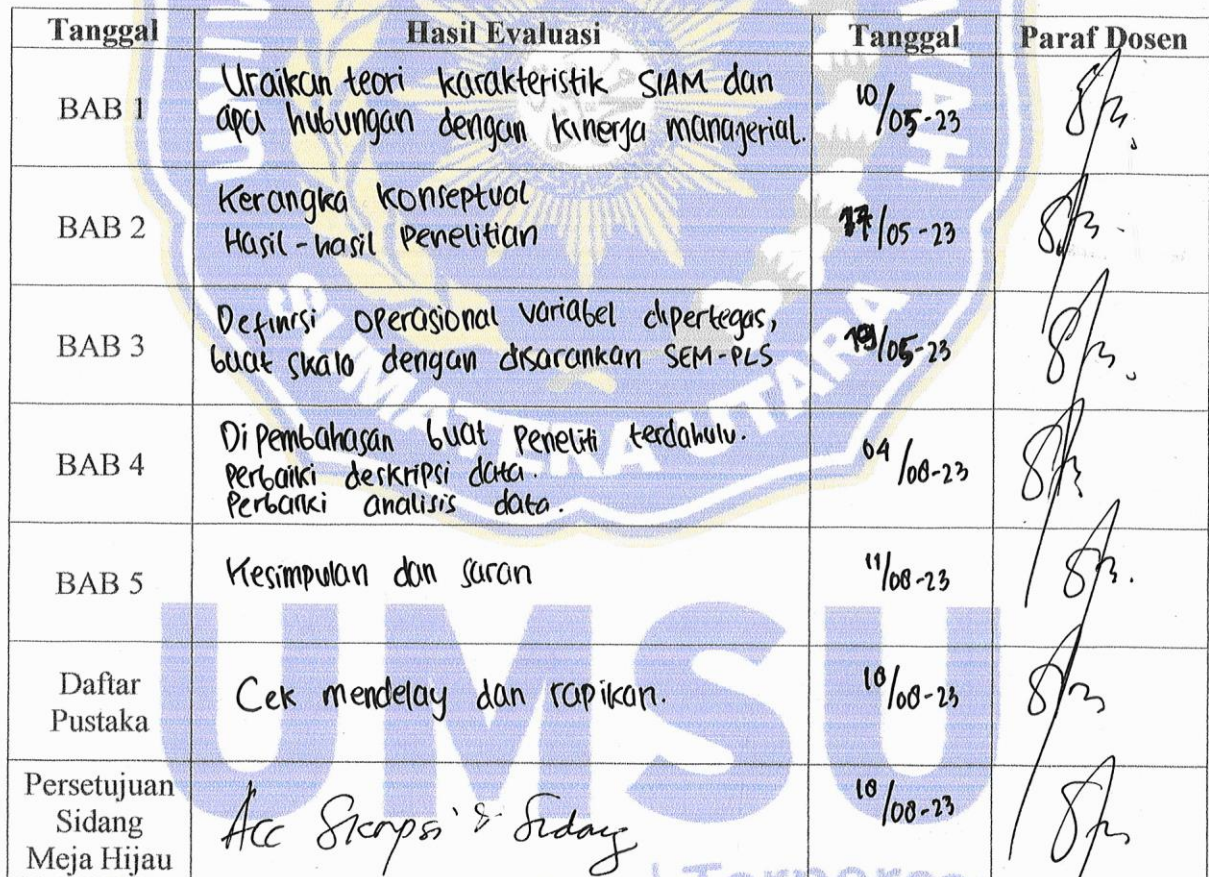 Tanggal Hasil Evaluasi Tanggal Paraf Dosen
BAB 1
Uraikan teori karakteristik SIAM dan
apa hubungan dengan kinerja managerial.
10/05-23
BAB 2
Kerangka Konseptual
Hasil-hasil Penelitian
17/05-23
BAB 3
Definisi operasional variabel dipertegas,
buat skala dengan disarankan SEM-PLS
19/05-23
BAB 4
Di pembahasan buat peneliti terdahulu.
Perbaiki deskripsi data.
Perbaiki analisis data.
04/08-23
BAB 5
Kesimpulan dan saran
11/08-23
Daftar
Pustaka
Cek mendelay dan rapikan.
18/08-23
Persetujuan
Sidang
Meja Hijau
Acc Skripsi & Sidang
18/08-23
UMSU
SUMATERA UTARA